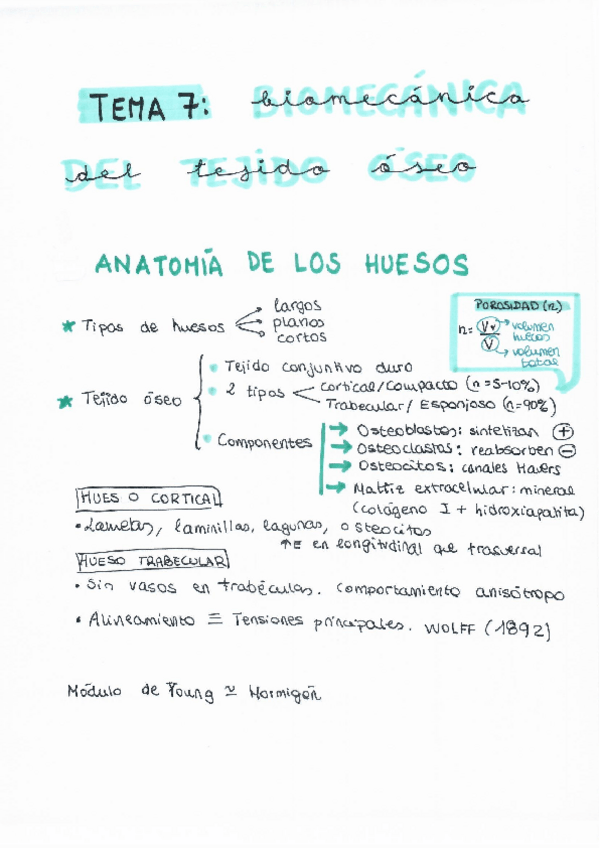 TEMA 7: biomecánica
del tejido óseo
ANATOMÍA DE LOS HUESOS
* Tipos de huesos
largos
planos
cortos
POROSIDAD (n)
n = Vv / V
volumen huecos
volumen total
* Tejido óseo
• Tejido conjuntivo duro
• 2 tipos
Cortical/Compacto (n=5-10%)
Trabecular/Esponjoso (n=90%)
• Componentes
→ Osteoblastos: sintetizan +
→ Osteoclastos: reabsorben -
→ Osteocitos: canales Havers
→ Matriz extracelular: mineral
(colágeno I + hidroxiapatita)
HUESO CORTICAL
• Lamelas, laminillas, lagunas, osteocitos
↑E en longitudinal que trasversal
HUESO TRABECULAR
• Sin vasos en trabéculas. Comportamiento anisótropo
• Alineamiento ≡ Tensiones principales. WOLFF (1892)
Módulo de Young ≃ Hormigón